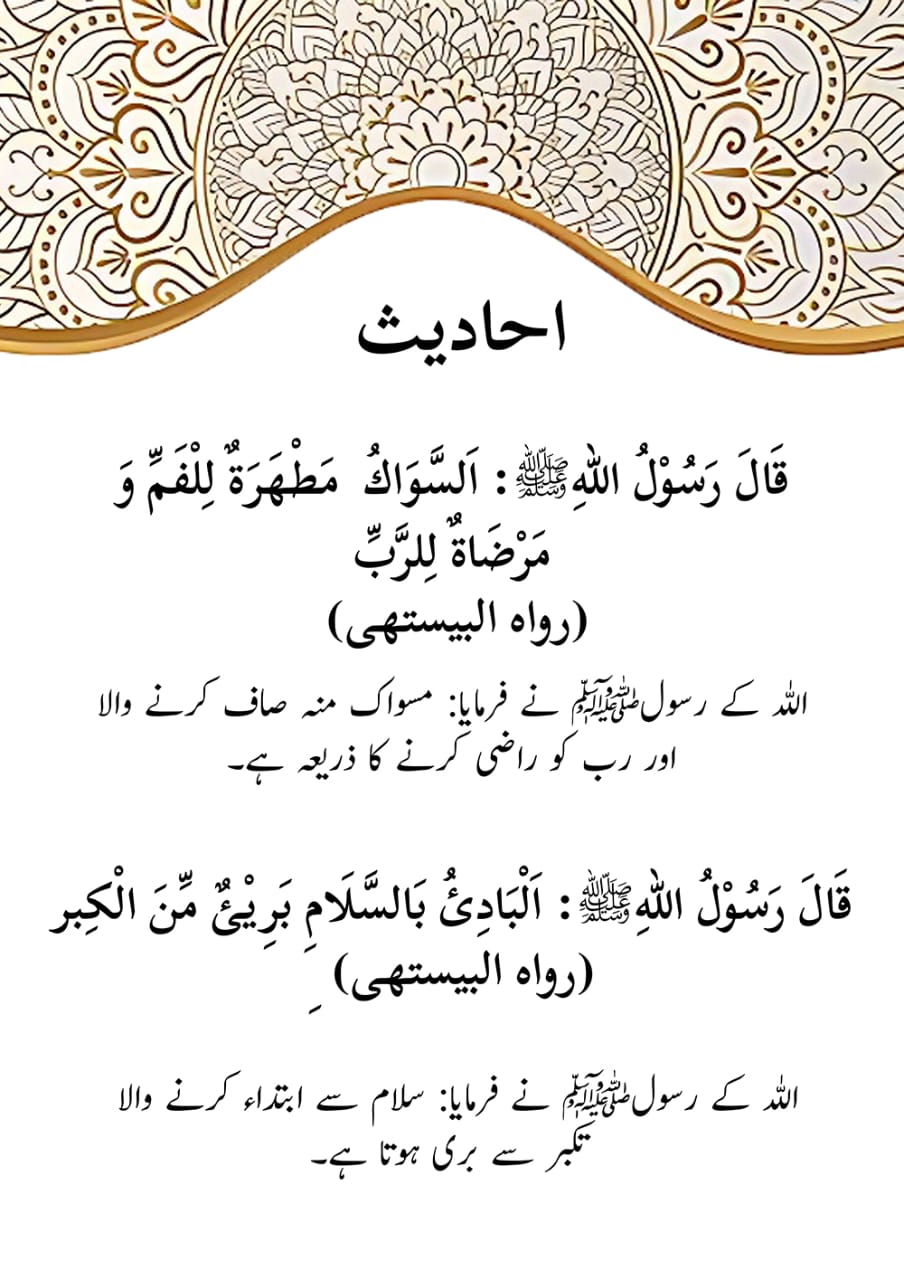 احادیث
قَالَ رَسُوْلُ اللہِﷺ: اَلسَّوَاكُ مَطْهَرَةٌ لِلْفَمِّ وَ
مَرْضَاةٌ لِلرَّبِّ
(رواہ البیستھی)
اللہ کے رسولﷺ نے فرمایا: مسواک منہ صاف کرنے والا
اور رب کو راضی کرنے کا ذریعہ ہے۔
قَالَ رَسُوْلُ اللہِﷺ: اَلْبَادِئُ بَالسَّلَامِ بَرِيْئٌ مِّنَ الْكِبر
(رواہ البیستھی) ِ
اللہ کے رسولﷺ نے فرمایا: سلام سے ابتداء کرنے والا
تکبر سے بری ہوتا ہے۔